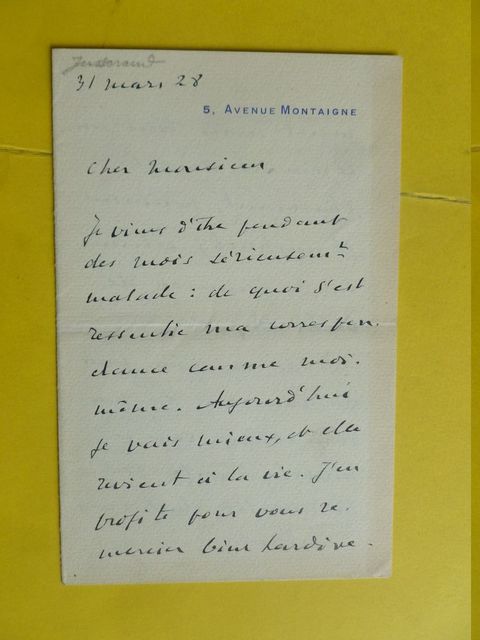 31 mars 28
5, AVENUE MONTAIGNE
Cher Monsieur,
Je viens d'être pendant
des mois sérieusemt
malade : de quoi s'est
ressentie ma correspon-
dance comme moi-
même. Aujourd'hui
je vais mieux, et elle
revient à la vie. J'en
profite pour vous re-
mercier bien tardive-